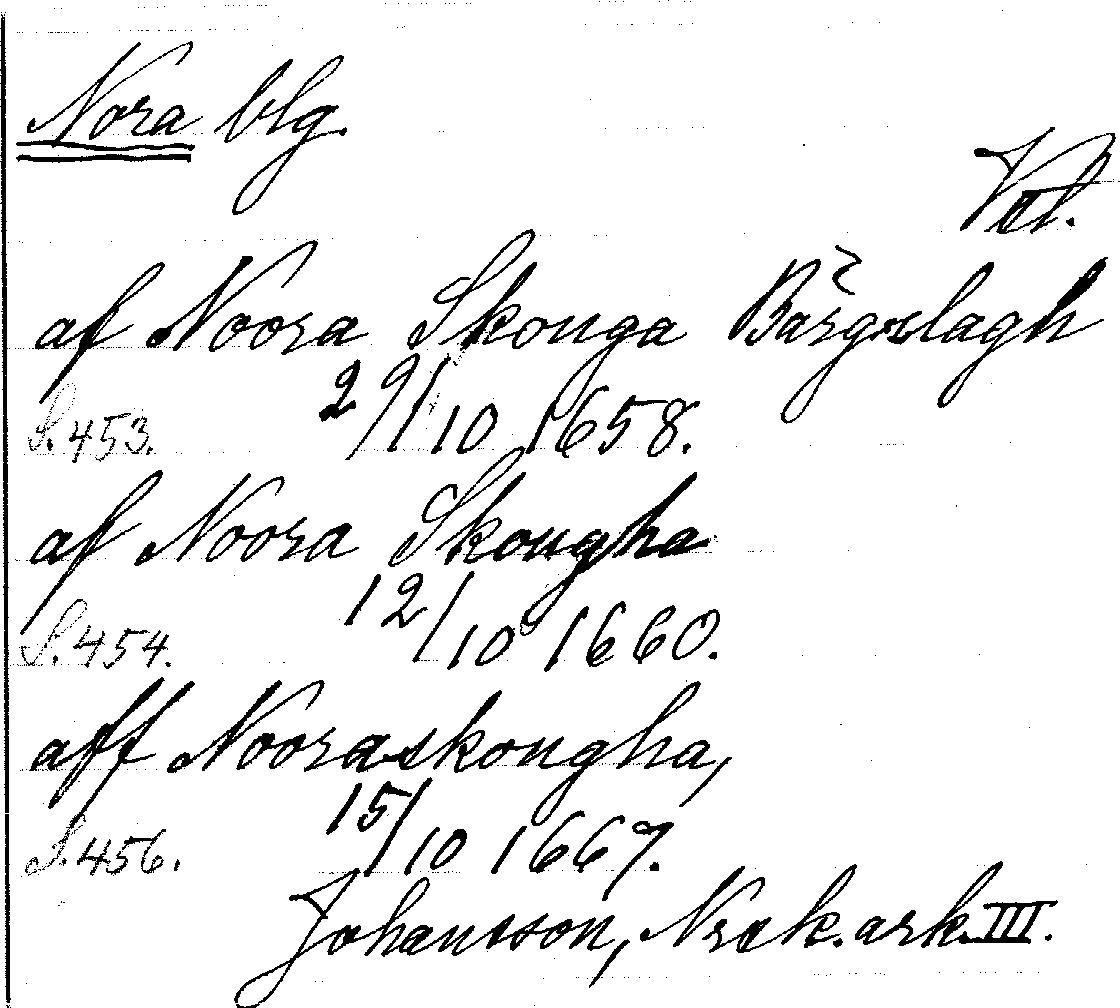 Nora blg.
Vtl.
af Noora Skonga Bärgzlagh
S. 453. 29/10 1658.
af Noora Skongha
S. 454. 12/10 1660.
aff Nooraskongha,
S. 456. 15/10 1667.
Johansson, Nrsk. ark. III.